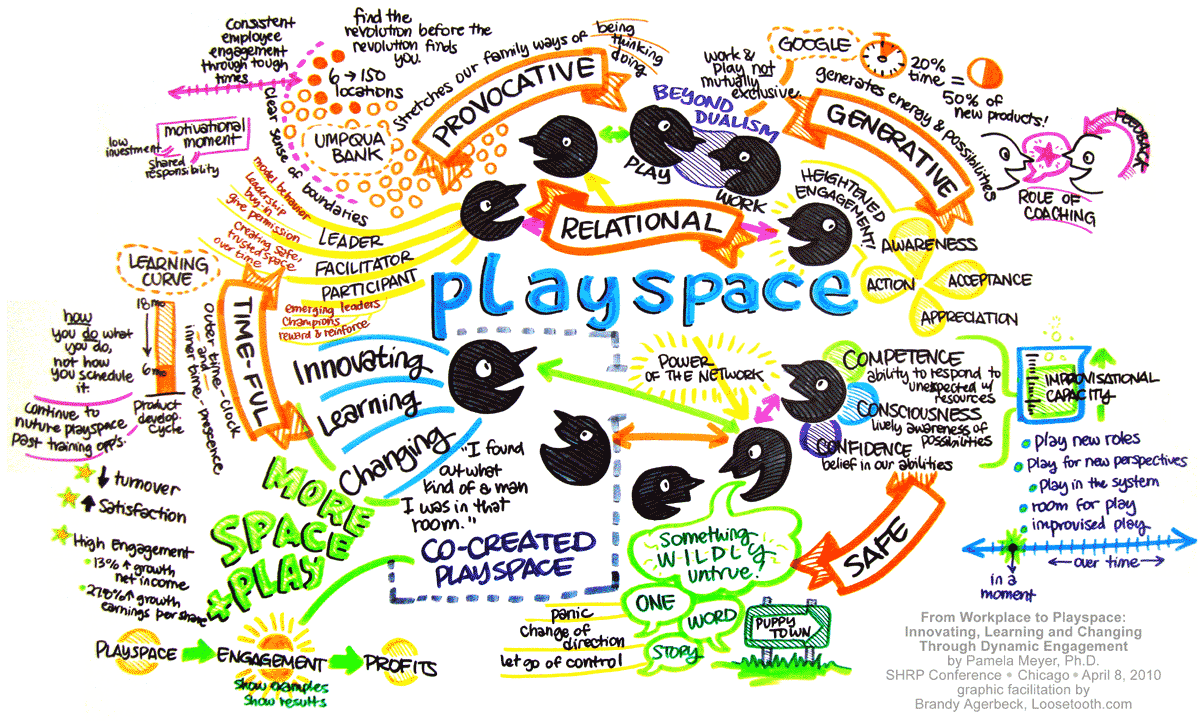 Consistent
employee
engagement
through tough
times
find the
revolution before the
revolution finds
you.
6 → 150
locations
clear sense of boundaries
UMPQUA
BANK
low
investment
motivational
moment
shared
responsibility
Stretches our family ways of
being
thinking
doing
PROVOCATIVE
work &
Play not
mutually
exclusive.
BEYOND
DUALISM
PLAY
WORK
GOOGLE
20%
time =
50% of
new products!
generates energy & possibilities
GENERATIVE
FEEDBACK
ROLE OF
COACHING
RELATIONAL
HEIGHTENED
ENGAGEMENT!
AWARENESS
ACTION
ACCEPTANCE
APPRECIATION
model behavior
Leadership
buy-in
give permission
LEADER
creating safe,
trusted space
over time
FACILITATOR
PARTICIPANT
emerging leaders
Champions
reward & reinforce
playspace
LEARNING
CURVE
18 mo
6 mo
Product
develop.
Cycle
how
you do what
you do,
not how
you schedule
it.
continue to
nuture playspace
past training opp's.
TIME-FUL
outer time-clock
and
inner time. presence
Innovating
Learning
Changing
POWER
OF THE NETWORK
COMPETENCE
ability to respond to
unexpected w/
resources
CONSCIOUSNESS
lively awareness of
possibilities
CONFIDENCE
belief in our abilities
IMPROVISATIONAL
CAPACITY
play new roles
play for new perspectives
play in the system
room for play
improvised play
in a
moment
over time
"I found
out what
kind of a man
I was in that
room."
CO-CREATED
PLAYSPACE
MORE
SPACE
+PLAY
turnover
Satisfaction
High Engagement
13% ↑ growth
net income
27.8% ↑ growth
earnings per share
PLAYSPACE
ENGAGEMENT
PROFITS
show examples
show results
SAFE
Something
W·I·L·D·L·Y
untrue!
ONE
WORD
STORY
panic
change of
direction
let go of control
PUPPY
TOWN
From Workplace to Playspace:
Innovating, Learning and Changing
Through Dynamic Engagement
by Pamela Meyer, Ph.D.
SHRP Conference • Chicago • April 8, 2010
graphic facilitation by
Brandy Agerbeck, Loosetooth.com